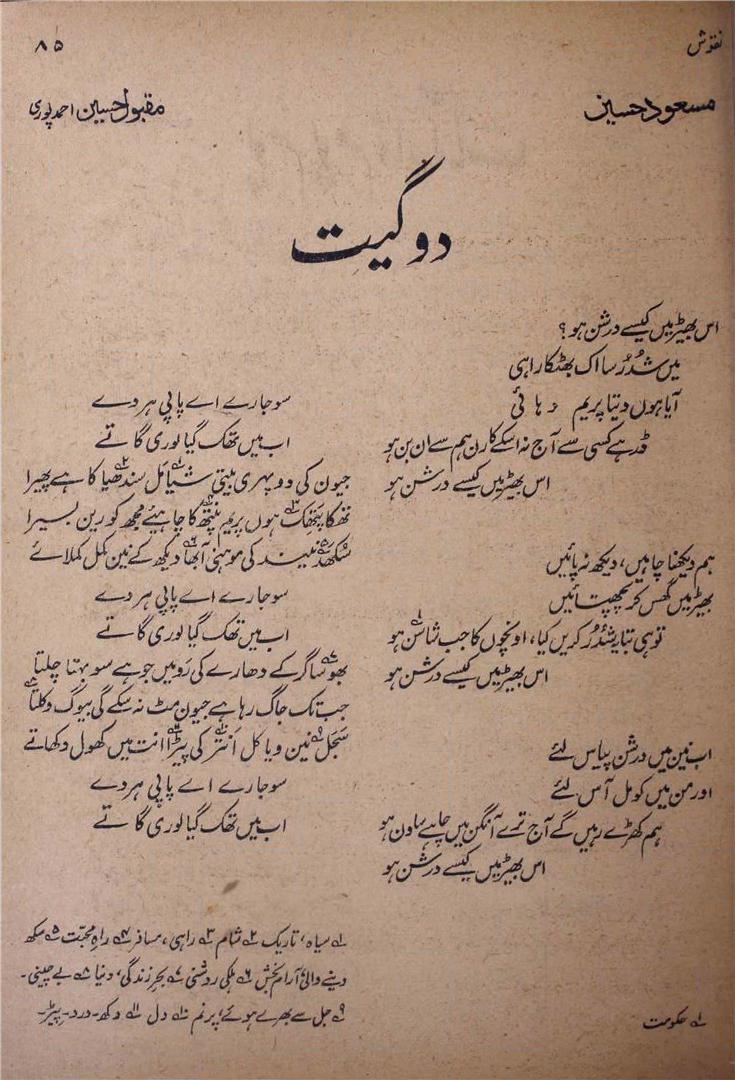 نقوش
۸۵
مسعود حسین
مقبول حسین احمد پوری
دو گیت
اس بھیڑ میں کیسے درشن ہو؟
میں شُدُر سا اک بھٹکا راہی
آیا ہوں دیتا پریم دہائی
ڈر ہے کسی سے آج نہ اسکے کارن ہم سے ان بن ہو
اس بھیڑ میں کیسے درشن ہو
ہم دیکھنا چاہیں، دیکھ نہ پائیں
بھیڑ میں گھس کر پچھتائیں
تو ہی بتا یہ شُدُر کریں کیا، اونچوں کا جب شاسن۱ ہو
اس بھیڑ میں کیسے درشن ہو
اب نین میں درشن پیاس لئے
اور من میں کومل آس لئے
ہم کھڑے رہیں گے آج ترے آنگن میں چاہے ساون ہو
اس بھیڑ میں کیسے درشن ہو
۱؎ حکومت
سو جا رے اے پاپی ہردے
اب میں تھک گیا لوری گاتے
جیون کی دوپہری بیتی شیامَل۱ سندھیا۲ کا ہے پھیرا
تھکا پنتھک۳ ہوں پریم پنتھ۴ کا چاہیئے مجھ کو رین بسیرا
سُکھد۵ نیند کی موہنی آبھا۶ دیکھ کے نین کمل کملائے
سو جا رے اے پاپی ہردے
اب میں تھک گیا لوری گاتے
بھو ساگر۷ کے دھارے کی رَو میں جو ہے سو بہتا چلتا
جب تک جاگ رہا ہے جیون مٹ نہ سکے گی بیوگ وکلتا۸
سَجَل۹ نین ویاکل اَنتَر۱۰ کی پیڑا۱۱ انت میں کھول دکھاتے
سو جا رے اے پاپی ہردے
اب میں تھک گیا لوری گاتے
۱؎ سیاہ، تاریک ۲؎ شام ۳؎ راہی، مسافر ۴؎ راہِ محبت ۵؎ سکھ
دینے والی، آرام بخش ۶؎ ہلکی روشنی ۷؎ بحرِ زندگی، دنیا ۸؎ بے چینی۔
۹؎ جل سے بھرے ہوئے، پرنم ۱۰؎ دل ۱۱؎ دکھ۔ درد۔ پیڑ۔